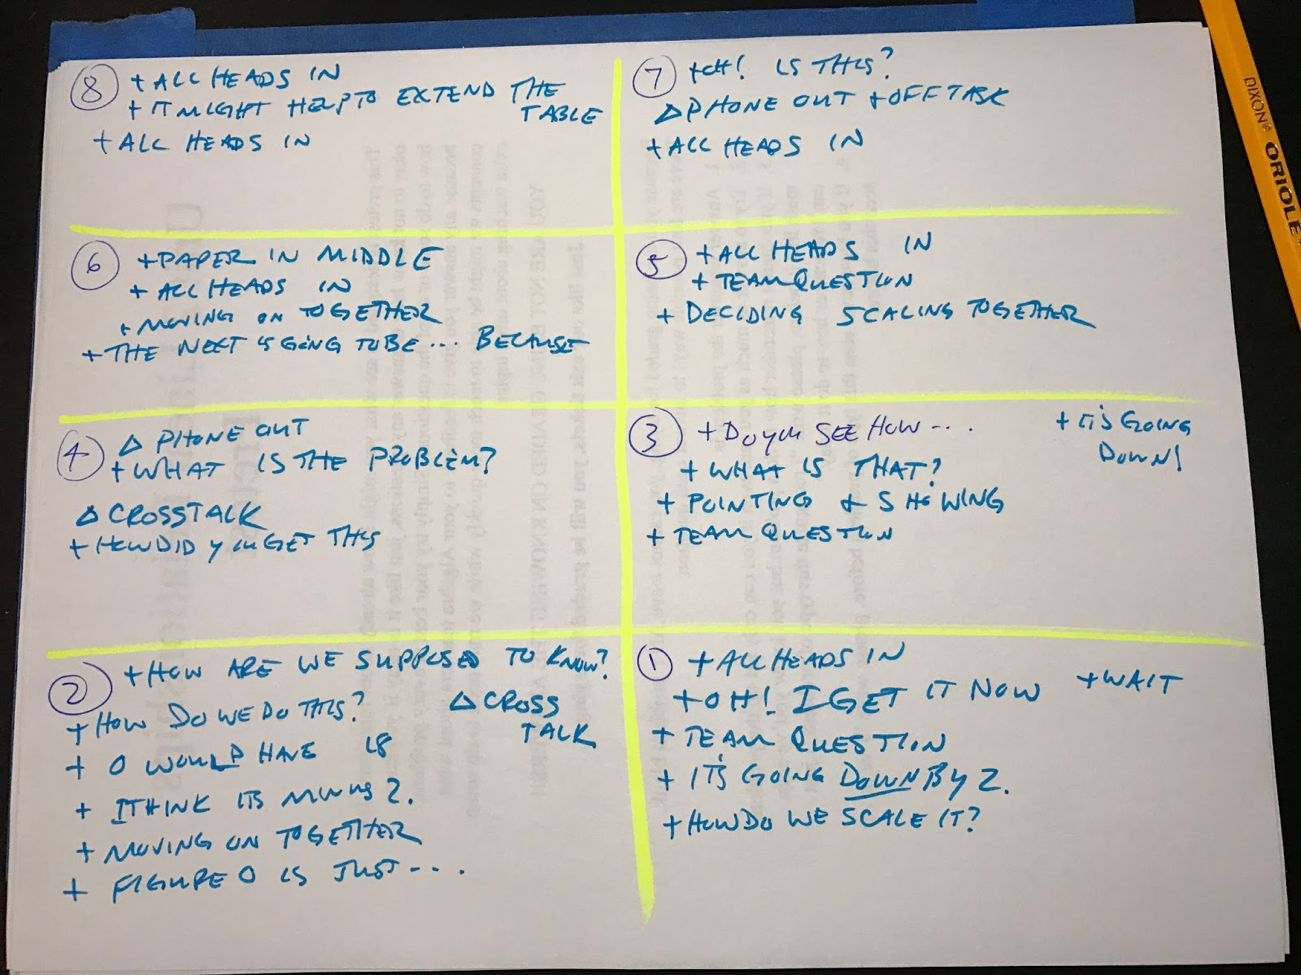 8 + ALL HEADS IN
+ IT MIGHT HELP TO EXTEND THE TABLE
+ ALL HEADS IN
7 + OH! IS THIS?
Δ PHONE OUT + OFF TASK
+ ALL HEADS IN
6 + PAPER IN MIDDLE
+ ALL HEADS IN
+ MOVING ON TOGETHER
+ THE NEXT IS GOING TO BE ... BECAUSE
5 + ALL HEADS IN
+ TEAM QUESTION
+ DECIDING SCALING TOGETHER
4 Δ PHONE OUT
+ WHAT IS THE PROBLEM?
Δ CROSSTALK
+ HOW DID YOU GET THIS
3 + DO YOU SEE HOW ...
+ IT'S GOING
DOWN!
+ WHAT IS THAT?
+ POINTING & SHOWING
+ TEAM QUESTION
2 + HOW ARE WE SUPPOSED TO KNOW?
+ HOW DO WE DO THIS?
Δ CROSS
TALK
+ 0 WOULD HAVE 18
+ I THINK ITS MINUS 2.
+ MOVING ON TOGETHER
+ FIGURE 0 IS JUST ....
1 + ALL HEADS IN
+ OH! I GET IT NOW + WAIT
+ TEAM QUESTION
+ IT'S GOING DOWN BY 2.
+ HOW DO WE SCALE IT?
DIXON ORIOLE